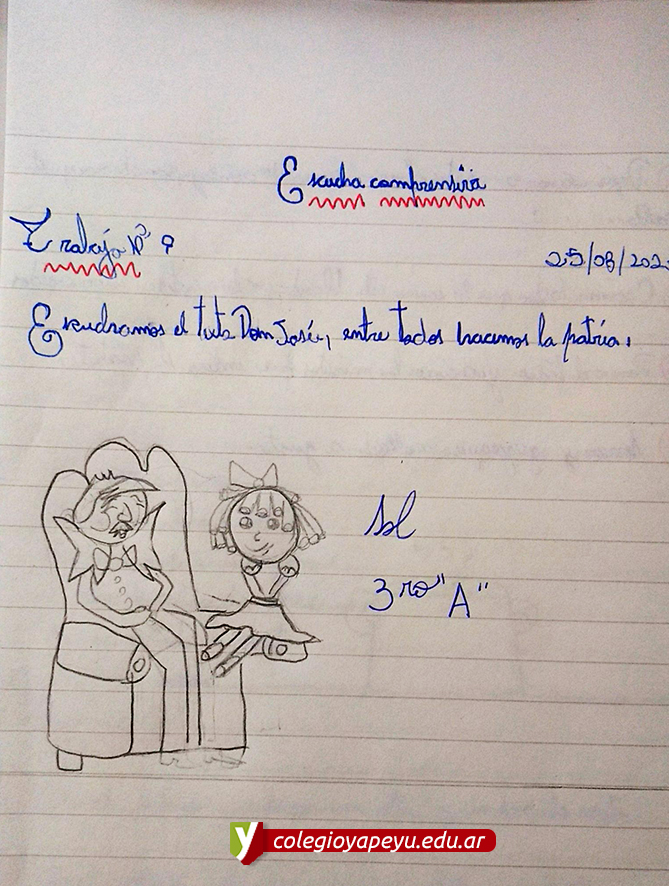 Escucha comprensiva
Trabajo N° 9
25/08/202
Escuchamos el texto Don José, entre todos hacemos la patria.
Sol
3ro "A"
y colegioyapeyu.edu.ar